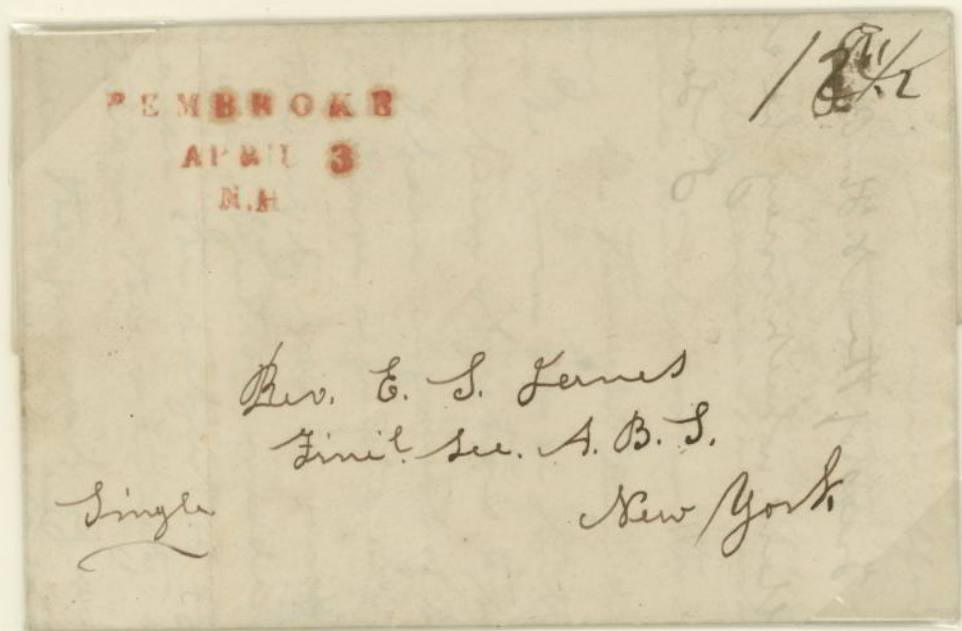 PEMBROKE
APRIL 3
N.H
18 1/2
Rev. E. S. Janes
Fin'l. Sec. A. B. S.
New York
Single